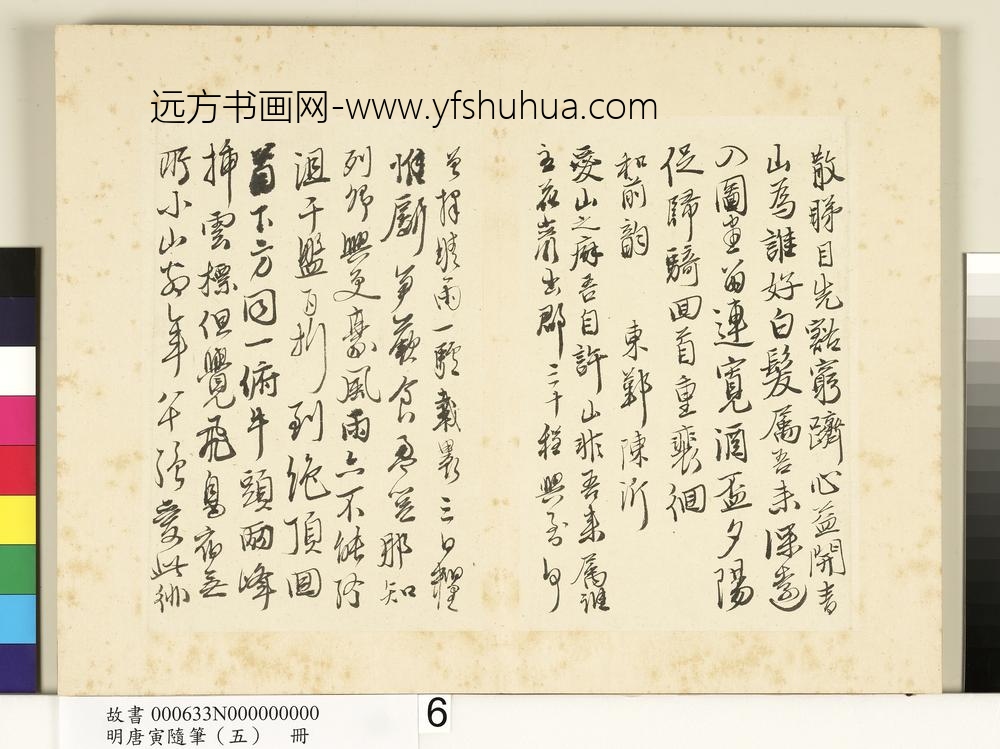 远方书画网-www.yfshuhua.com
散睇目先豁窮躋心益開青
山為誰好白髮屬吾未深遠
入圖畫留連寬酒盃夕陽
促歸騎回首重裴徊
和前韻 東鄞陳沂
愛山之癖吾自許山非吾來屬誰
主 出郡三十程興
晴雨一 載 三日糧
惟 爭 那知
列 興更豪風雨亦不能阻
沮千盤百折到絕頂回
首下方同一俯牛頭兩峰
插雲標但覺飛鳥宿無
所小山 年 強愛此
故書000633N000000000
明唐寅隨筆（五） 冊
6